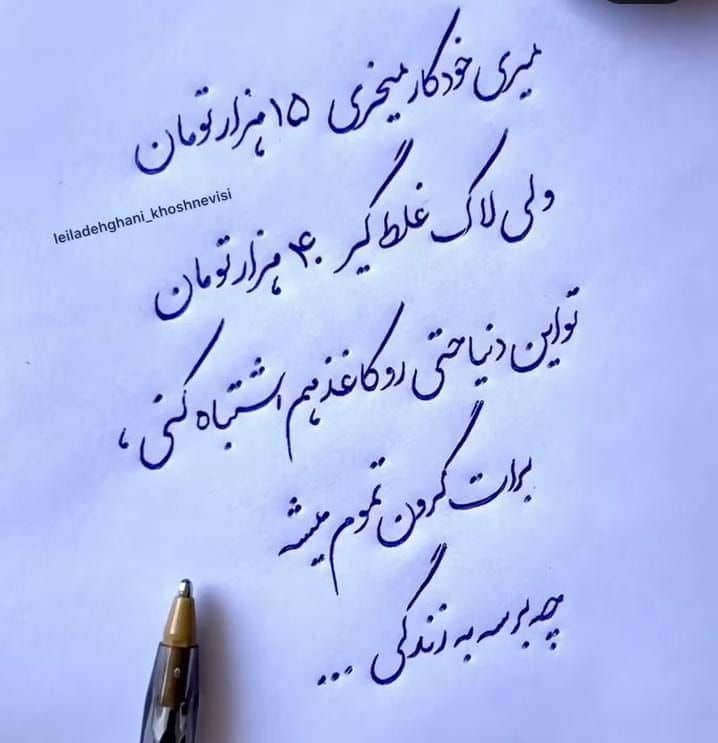 میری خودکار میخری ۱۵ هزار تومان
leiladehghani_khoshnevisi
ولی لاک غلط گیر ۴۰ هزار تومان
تو این دنیا حتی رو کاغذ هم اشتباه کنی ،
برات گرون تموم میشه
چه برسه به زندگی ...